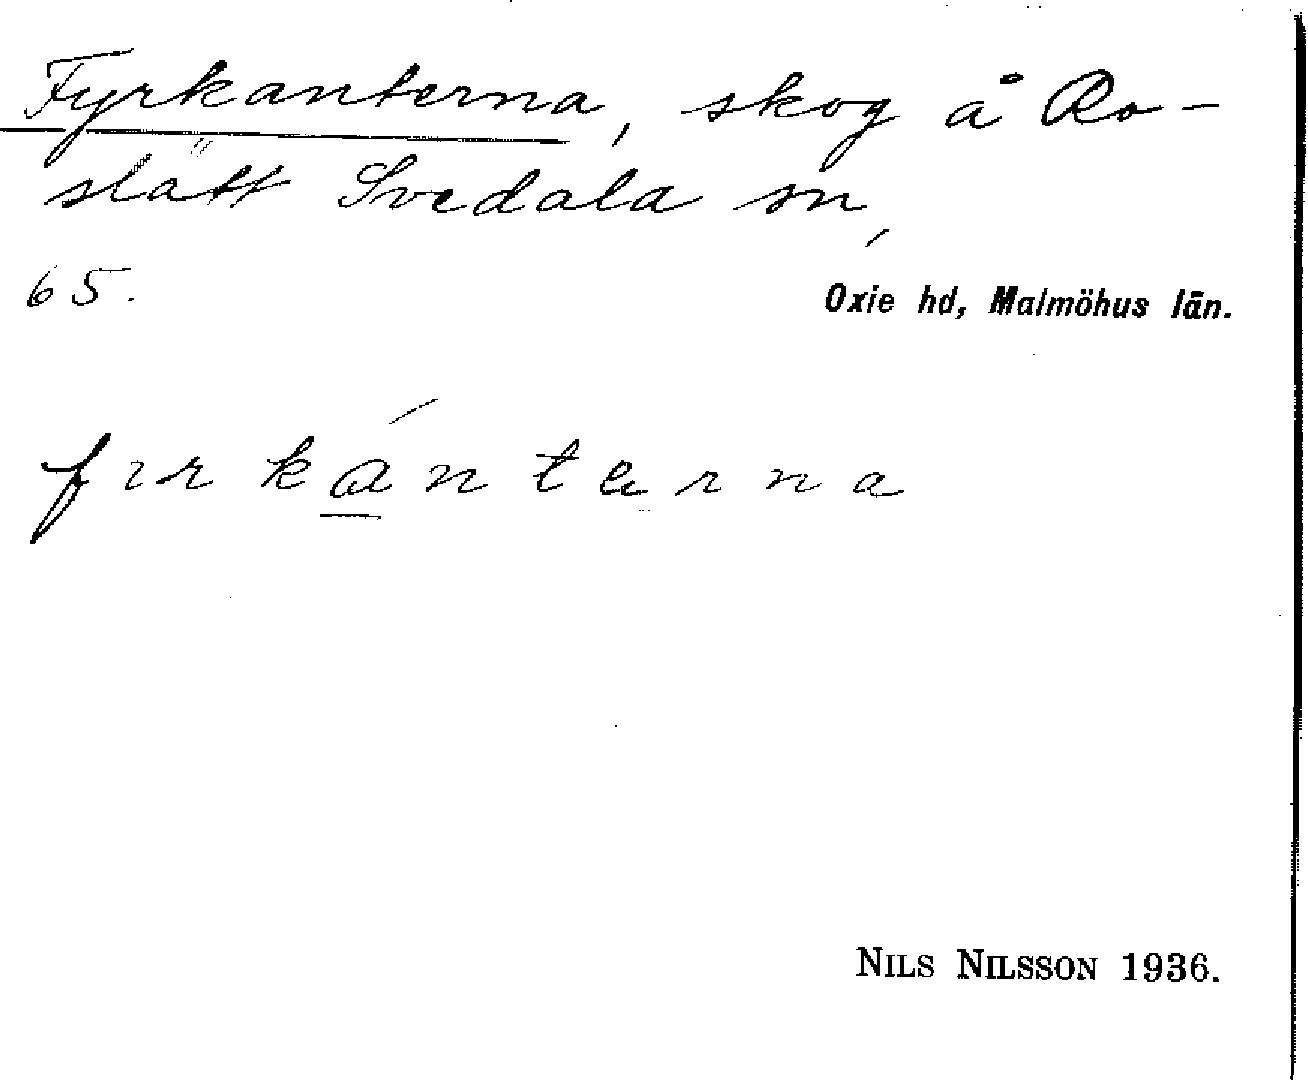 Fyrkanterna, skog å Ro-
slätt Svedala sn,
65.
Oxie hd, Malmöhus län.
fırkánterna
NILS NILSSON 1936.